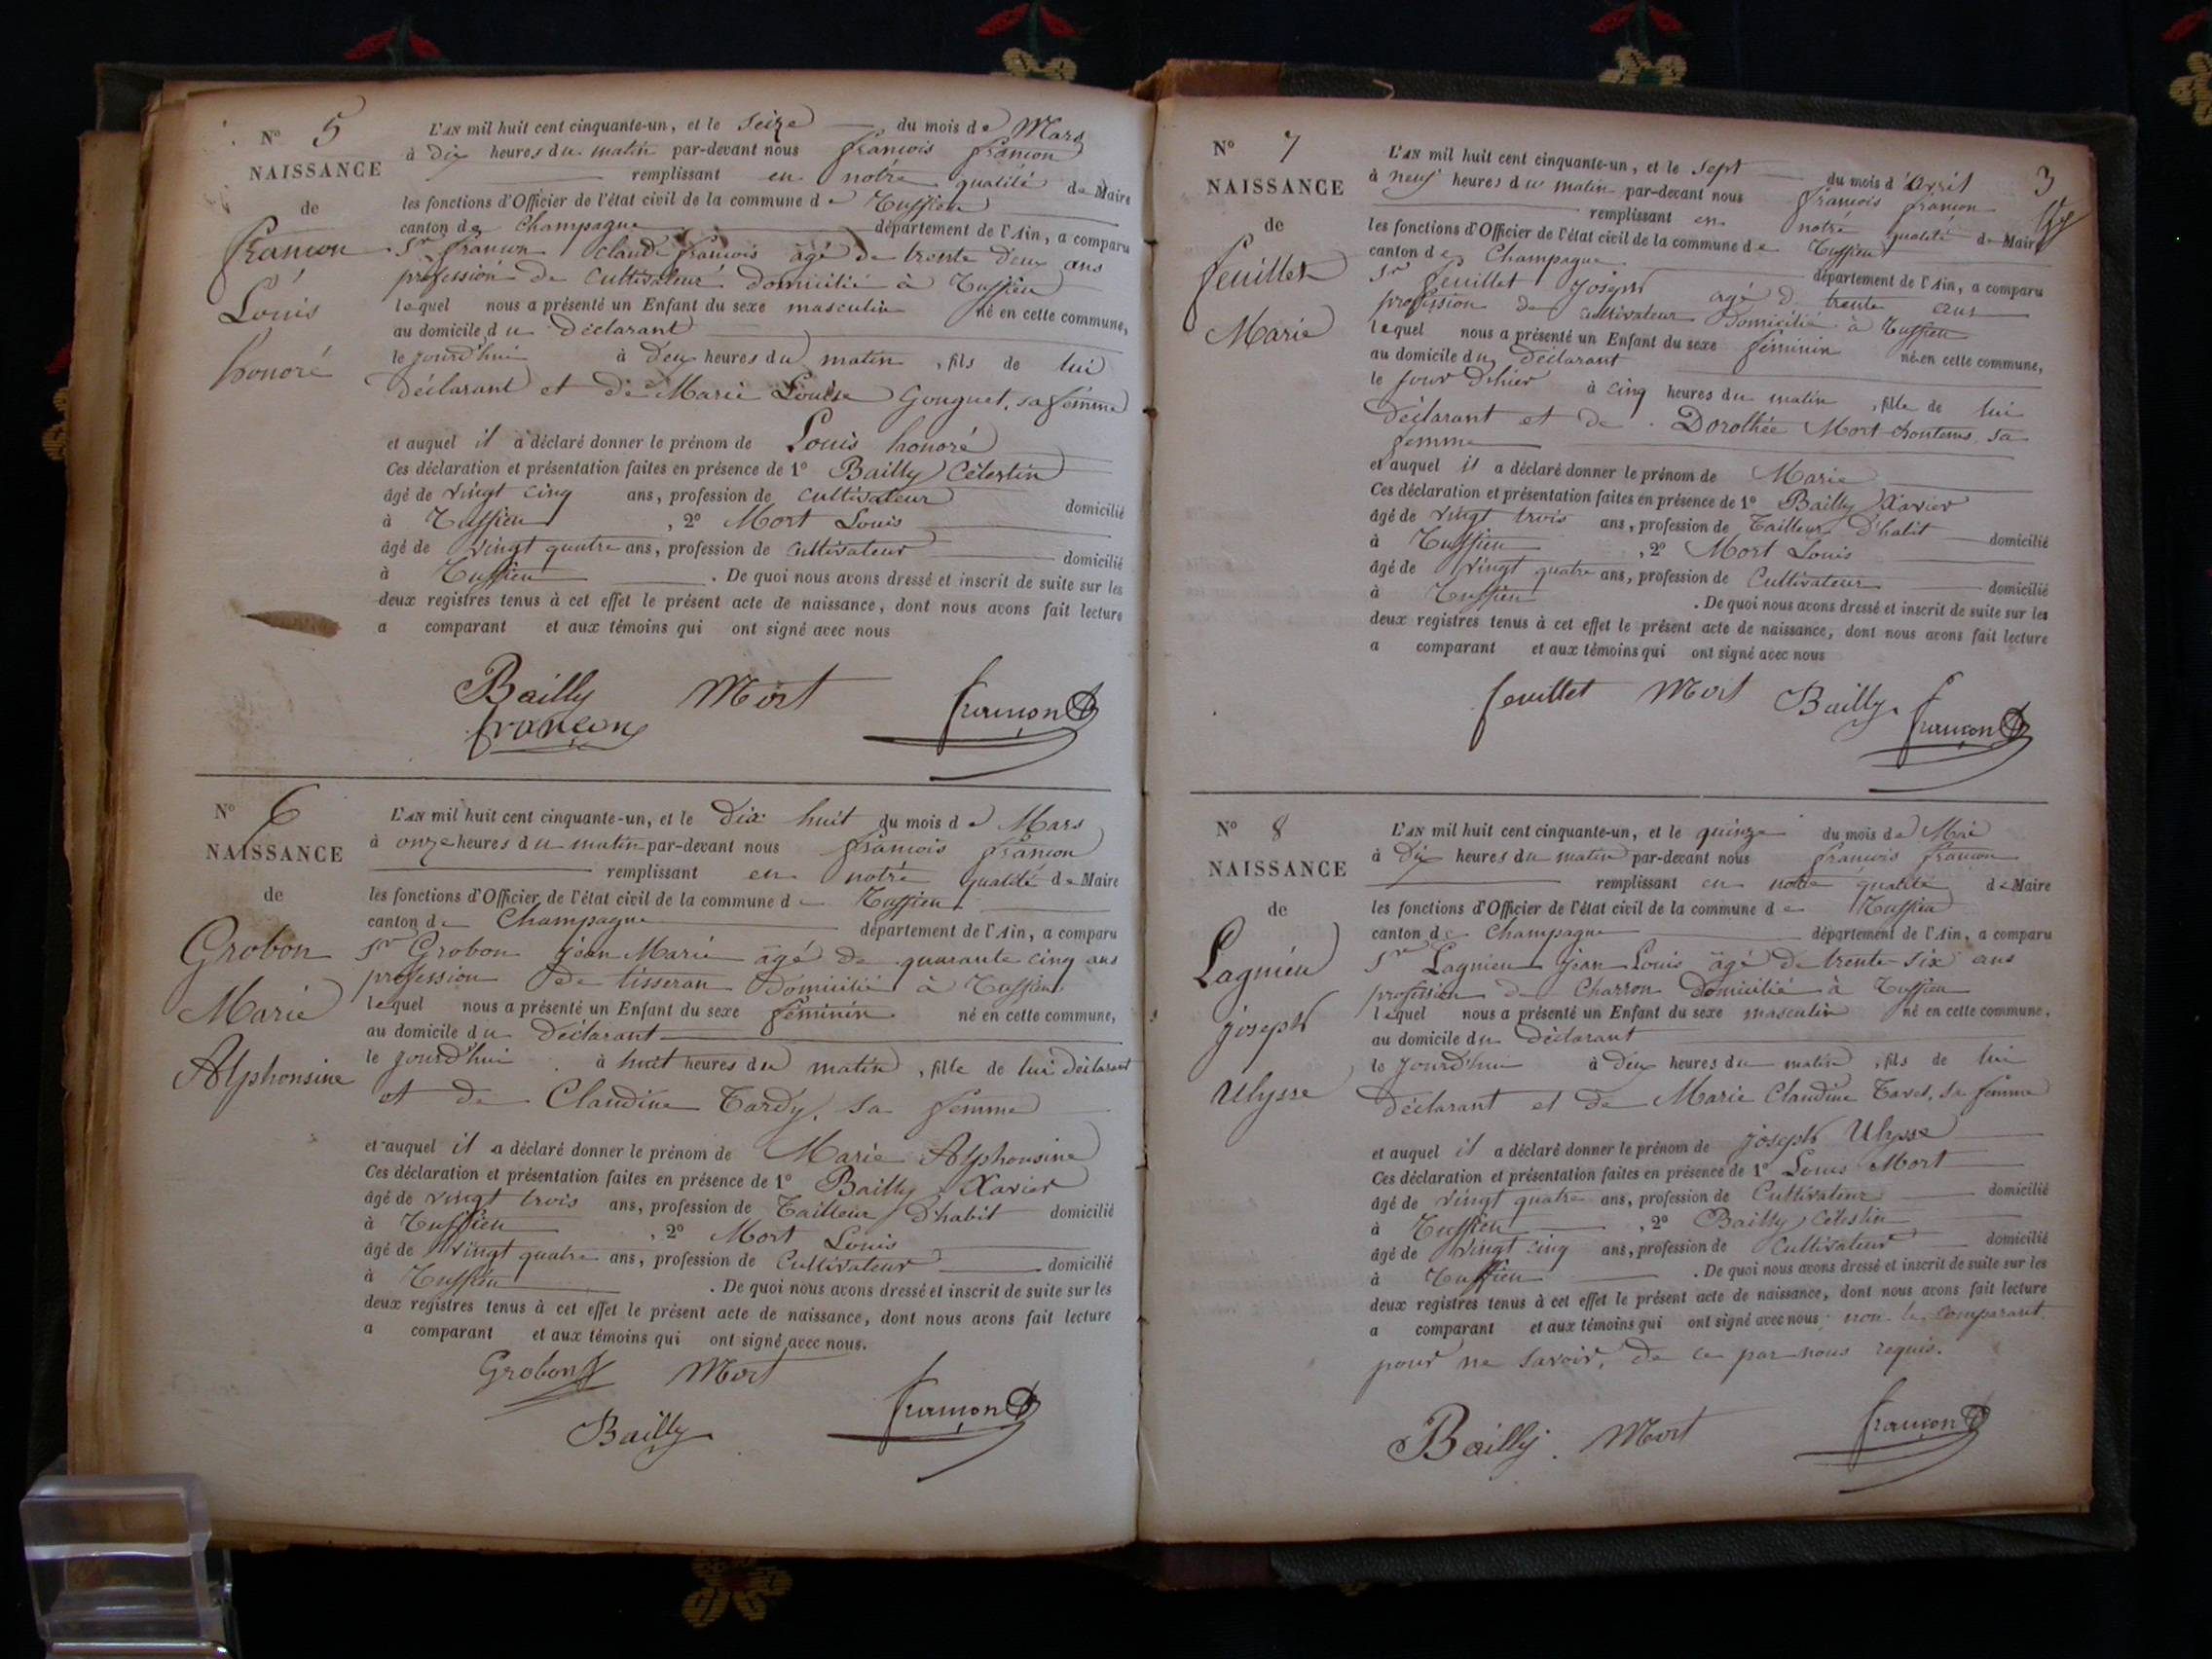 N° 5
NAISSANCE
de
françon
Louis
honoré
L'AN mil huit cent cinquante-un, et le Seize du mois de Mars
à dix heures du matin par-devant nous françois françon
remplissant en notre qualité de Maire
les fonctions d'Officier de l'état civil de la commune de Ruffieu
canton de Champagne département de l'Ain, a comparu
Sr françon claude françois âgé de trente deux ans
profession de Cultivateur domicilié à Ruffieu
lequel nous a présenté un Enfant du sexe masculin né en cette commune,
au domicile du Déclarant
le jourd'hui à deux heures du matin, fils de lui
Déclarant et de Marie Louise Gouguet, sa femme
et auquel il a déclaré donner le prénom de Louis honoré
Ces déclaration et présentation faites en présence de 1° Bailly Célestin
âgé de vingt cinq ans, profession de cultivateur domicilié
à Ruffieu, 2° Mort Louis
âgé de vingt quatre ans, profession de cultivateur domicilié
à Ruffieu. De quoi nous avons dressé et inscrit de suite sur les
deux registres tenus à cet effet le présent acte de naissance, dont nous avons fait lecture
a comparant et aux témoins qui ont signé avec nous
Bailly Mort françon
françon
N° 6
NAISSANCE
de
Grobon
Marie
Alphonsine
L'AN mil huit cent cinquante-un, et le Dix huit du mois de Mars
à onze heures du matin par-devant nous françois françon
remplissant en notre qualité de Maire
les fonctions d'Officier de l'état civil de la commune de Ruffieu
canton de Champagne département de l'Ain, a comparu
Sr Grobon jean Marie âgé de quarante cinq ans
profession de tisseran domicilié à Ruffieu
lequel nous a présenté un Enfant du sexe féminin né en cette commune,
au domicile du Déclarant
le jourd'hui à huit heures du matin, fille de lui déclarant
et de Claudine Tardy, sa femme
et auquel il a déclaré donner le prénom de Marie Alphonsine
Ces déclaration et présentation faites en présence de 1° Bailly Xavier
âgé de vingt trois ans, profession de Tailleur D'habit domicilié
à Ruffieu, 2° Mort Louis
âgé de vingt quatre ans, profession de Cultivateur domicilié
à Ruffieu. De quoi nous avons dressé et inscrit de suite sur les
deux registres tenus à cet effet le présent acte de naissance, dont nous avons fait lecture
a comparant et aux témoins qui ont signé avec nous.
Grobon Mort françon
Bailly
3
N° 7
NAISSANCE
de
feuillet
Marie
L'AN mil huit cent cinquante-un, et le Sept du mois d'Avril
à neuf heures du matin par-devant nous françois françon
remplissant en notre qualité de Maire
les fonctions d'Officier de l'état civil de la commune de Ruffieu
canton de Champagne département de l'Ain, a comparu
Sr feuillet Joseph âgé de trente ans
profession de cultivateur Domicilié à Ruffieu
lequel nous a présenté un Enfant du sexe féminin né en cette commune,
au domicile du Déclarant
le jour D'hier à cinq heures du matin, fille de lui
Déclarant et de Dorothée Mort sa
femme
et auquel il a déclaré donner le prénom de Marie
Ces déclaration et présentation faites en présence de 1° Bailly Xavier
âgé de vingt trois ans, profession de Tailleur D'habit domicilié
à Ruffieu, 2° Mort Louis
âgé de vingt quatre ans, profession de Cultivateur domicilié
à Ruffieu. De quoi nous avons dressé et inscrit de suite sur les
deux registres tenus à cet effet le présent acte de naissance, dont nous avons fait lecture
a comparant et aux témoins qui ont signé avec nous
feuillet Mort Bailly françon
N° 8
NAISSANCE
de
Lagnieu
joseph
Ulysse
L'AN mil huit cent cinquante-un, et le quinze du mois de Mai
à Dix heures du matin par-devant nous françois françon
remplissant en notre qualité de Maire
les fonctions d'Officier de l'état civil de la commune de Ruffieu
canton de Champagne département de l'Ain, a comparu
Sr Lagnieu jean Louis âgé de trente-six ans
profession de Charron Domicilié à Ruffieu
lequel nous a présenté un Enfant du sexe masculin né en cette commune,
au domicile du Déclarant
le jourd'hui à deux heures du matin, fils de lui
Déclarant et de Marie Claudine Tavel, sa femme
et auquel il a déclaré donner le prénom de joseph Ulysse
Ces déclaration et présentation faites en présence de 1° Louis Mort
âgé de vingt quatre ans, profession de Cultivateur domicilié
à Ruffieu, 2° Bailly Célestin
âgé de vingt cinq ans, profession de cultivateur domicilié
à Ruffieu. De quoi nous avons dressé et inscrit de suite sur les
deux registres tenus à cet effet le présent acte de naissance, dont nous avons fait lecture
a comparant et aux témoins qui ont signé avec nous, non le comparant
pour ne savoir, de ce par nous requis.
Bailly. Mort françon